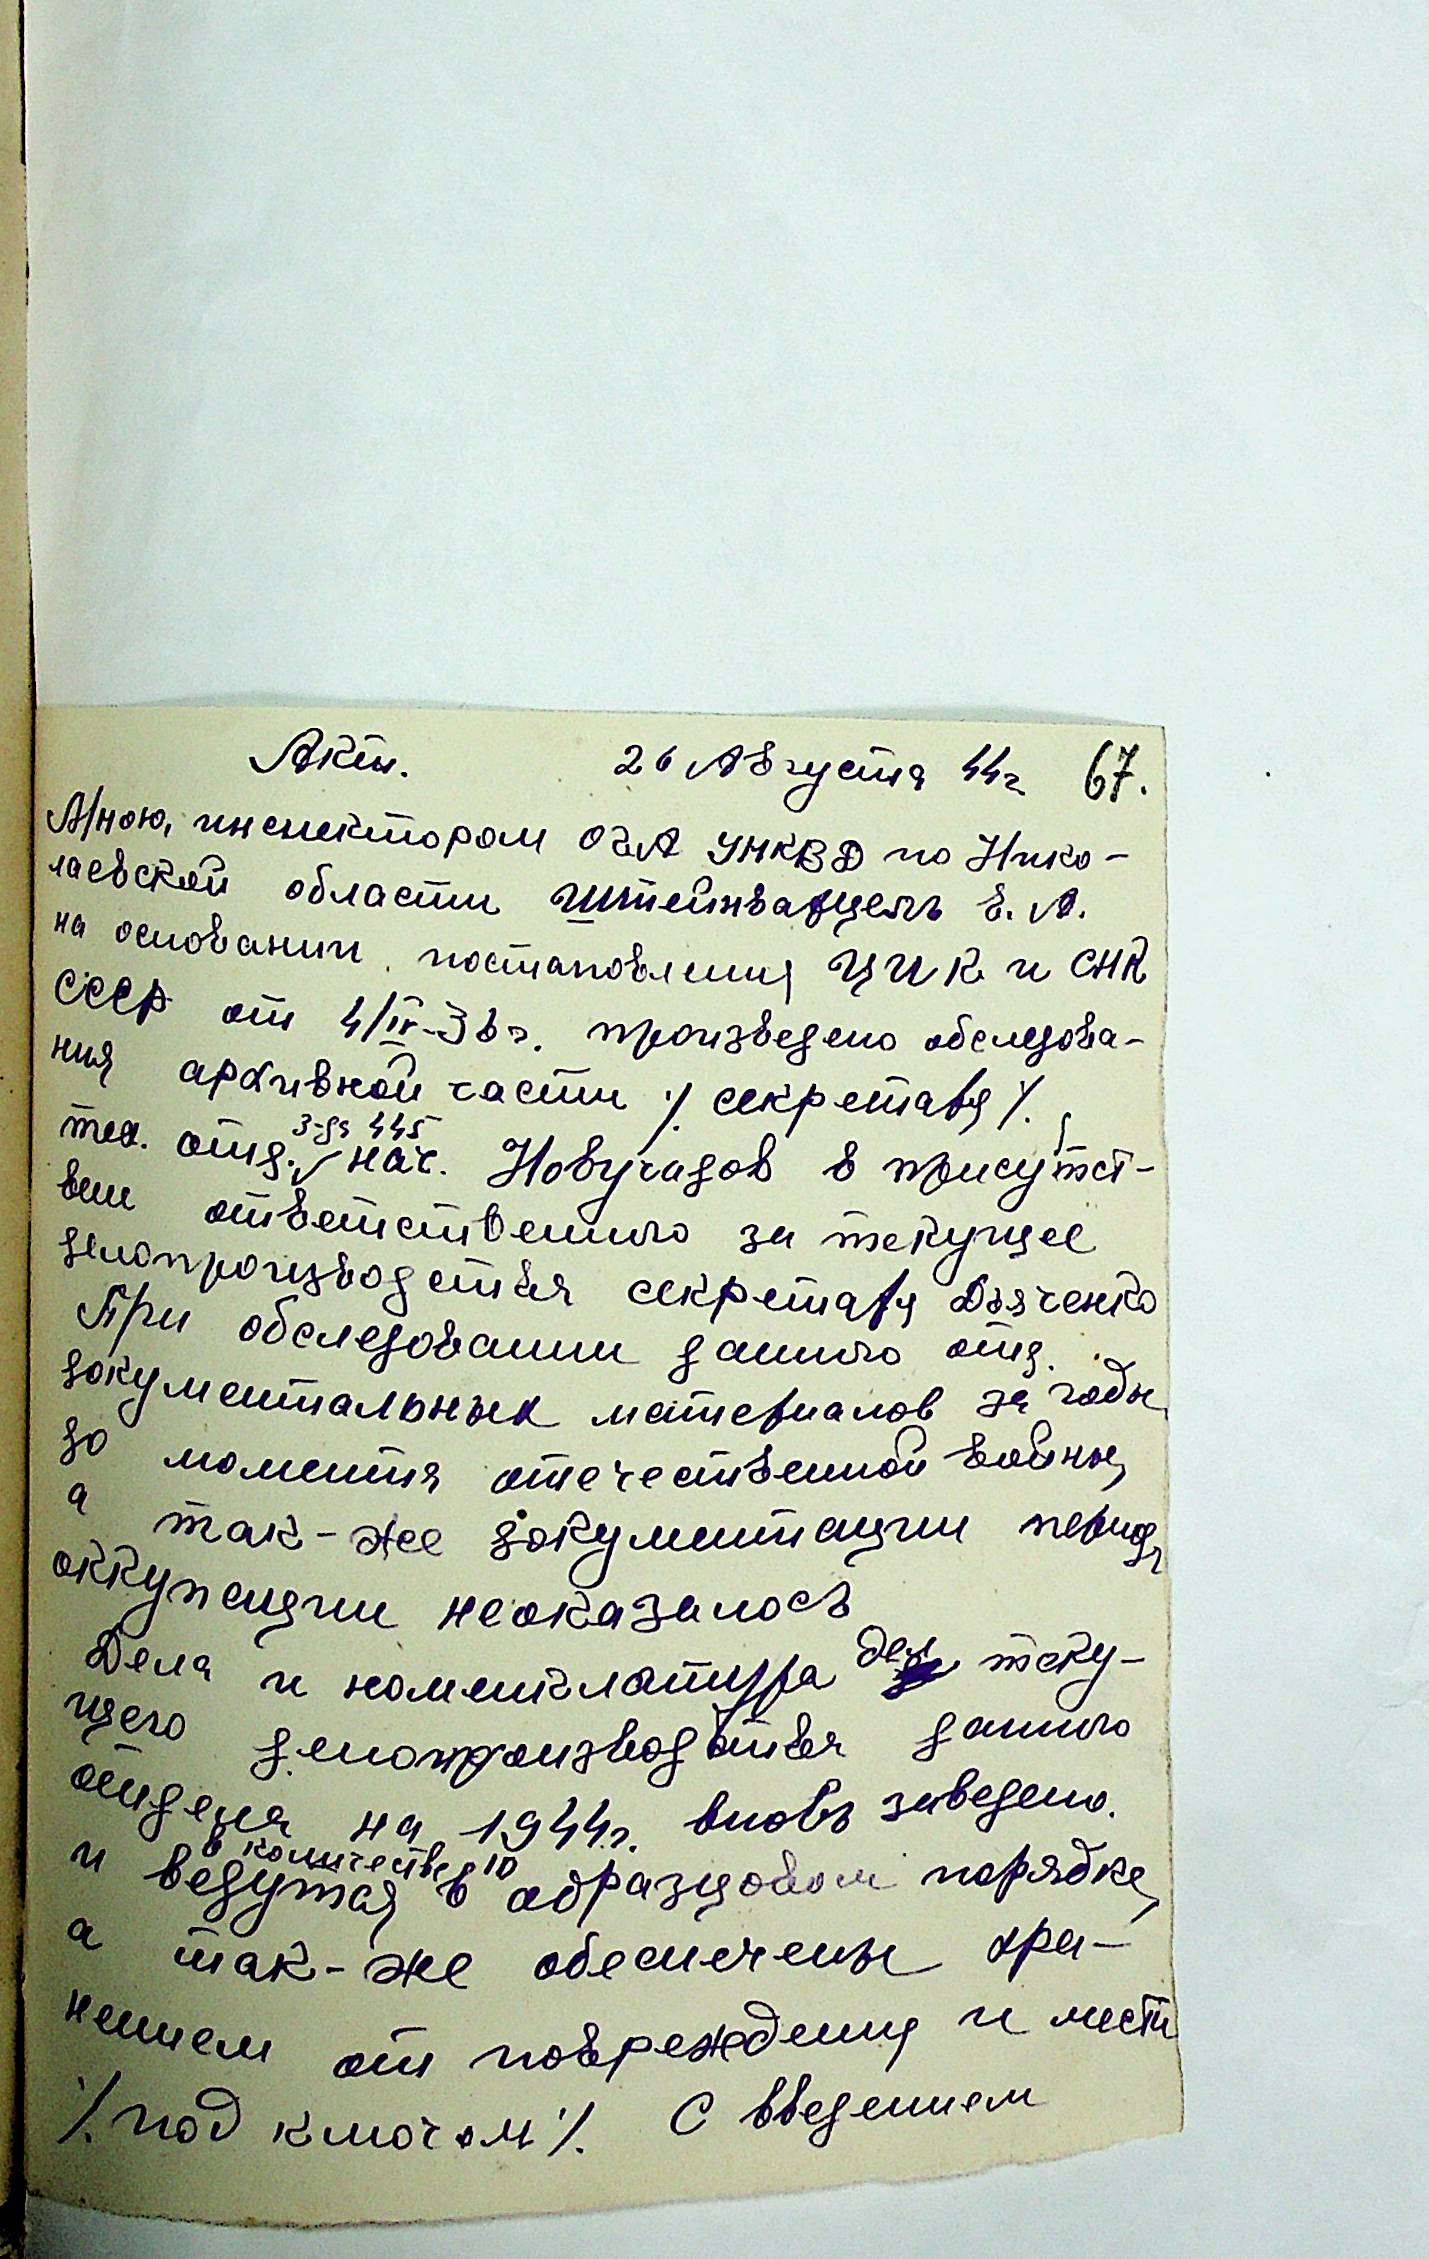 Акт. 26 Августа 44г 67.
Мною, инспектором ОГА УНКВД по Нико-
лаевской области Штейнварцель Е. А.
на основании постановления ЦИК и СНК
СССР от 4/IV-36г. произведено обследова-
ния архивной части ·/. секретаря ·/.
тех. отд. з-да 445 нач. Новучадов в присутст-
вии ответственного за текущее
делопроизводствя секретаря Дьяченко
При обследовании данного отд.
документальных материалов за годы
до момента отечественной войны,
а так-же документации периода
оккупации неоказалось
Дела и номенклатура дел теку-
щего делопроизводствя данного
отдела на 1944г. вновь заведено.
в количестве 10
и ведутся в образцовом порядке,
а так-же обеспечены хра-
нением от повреждения и мести
·/. под ключом ·/. С введением